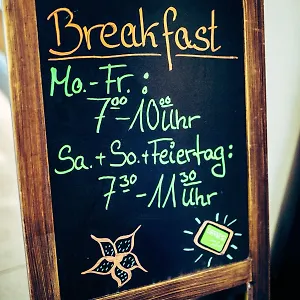 Breakfast
Mo.-Fr.:
7⁰⁰-10⁰⁰ Uhr
Sa.+So.+Feiertag:
7³⁰-11³⁰ Uhr